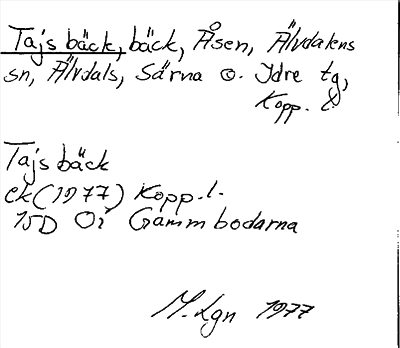 Tajsbäck, bäck, Åsen, Älvdalens
sn, Älvdals, Särna o. Idre tg,
Kopp. l.
Tajsbäck
ek (1977) Kopp. l.
15D 0i Gammbodarna
M. Lgn 1977